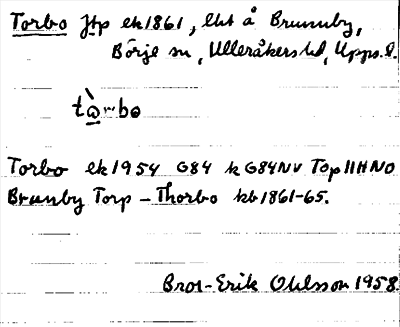 Torbo Jtp ek 1861, lht å Brunnby,
Börje sn, Ulleråkers hd, Upps. l.
tàrbo
Torbo ek 1954 G84 k G84NV Top 11HNO
Brunby Torp – Thorbo kb 1861-65.
Brol-Erik Ohlsson 1958.